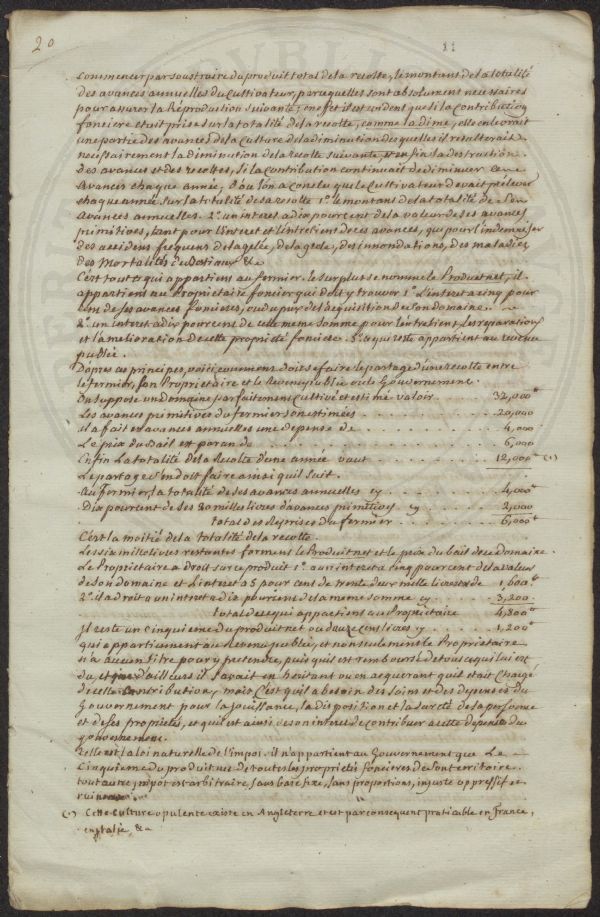 20
11
commencer par soustraire du produit total de la recolte, le montant de la totalité
des avances annuelles du Cultivateur, parceque elles sont absolument necessaires
pour assurer la Réproduction suivante; en effet il est evident que si la Contribution
fonciere etoit prise sur la totalité de la recolte, comme la Dime, elle enleveroit
une partie des avances de la Culture de la diminution des quelles il resulterait
necessairement la diminution de la recolte suivante, et enfin la destruction
des avances et des recoltes, si la contribution continuait de diminuer ces
Avances chaque année, D'ou l'on a conclu que le Cultivateur devait prélever
chaque année sur la totalité de sa recolte 1.o le montant de la totalité de Son
Avances annuelles. 2.o un interet a dix pour cent de la valeur de ses avances
primitives, tant pour l'interet et l'entretien de ces avances, que pour l'indemniser
des accidens frequens de la gelée, de la grele, des innondations, des maladies,
Des Mortalités de Bestiaux &a
C'est tout ce qui appartient au fermier. le surplus se nomme le Produit net, il
appartient au Proprietaire foncier qui doit y trouver 1.o L'interet a cinq pour
cent de ses avances foncieres, ou du prix de l'acquisition de son domaine.
2.o un interet a dix pour cent de cette meme somme pour l'entretient, les reparations
et l'amelioration de cette proprieté fonciere. 3.o ce qui reste appartient au revenu
publice.
D'apres ces principes, voici comment doit se faire le partage d'une recolte entre
le fermier, son Proprietaire et le Revenu public ou le Gouvernement.
On suppose un Domaine parfaitement cultivé et estimé valoir 32,000 tt
Les avances primitives du fermier son estimées . . . . . . . . 20,000
il a fait en avances annuelles une depense de . . . . . . . . 4,000
Le prix du Bail est par an de . . . . . . . . 6,000
Enfin La totalité de la Recolte d'une année vaut . . . . . . . . 12,000 tt (1)
Le partage s'en doit faire ainsi qu'il suit.
au Fermier, la totalité de ses avances annuelles cy . . . . . . 4,000 tt
Dix pour cent de ses 20 mille livres d'avances primitives cy . . . . 2,000
total des Reprises du fermier . . . . . . 6,000 tt
C'est la moitié de la totalité de la recolte.
Les six mille livres restantes forment le Produit net et le prix du bail de ce domaine.
Le Proprietaire a Droit sur ce produit 1.o a un interet a cinq pour cent de la valeur
de son domaine et L'interet a 5 pour cent de trente deux mille livres est de 1,600 tt
2.o il a droit a un interet a dix pour cent de la meme somme cy . . . 3,200
total de ce qui appartient au Proprietaire 4,800 tt
Il reste un cinquieme du produit net ou douze cens livres cy . . . 1,200 tt
qui appartiennent au revenu public, et non seulement le Proprietaire
n'a aucun titre pour y pretendre, puis quil est remboursé de tout ce qui lui est
du, et que d'ailleurs il savait en héritant ou en acquerant quil etait Chargé
de cette Contribution, mais c'est quil a besoin des soins et des depenses du
Gouvernement pour la jouissance, la disposition et la sureté de sa personne
et de ses proprietés, et quil est ainsi de son interet de contribuer a cette depense du
gouvernement.
telle est la loi naturelle de l'impot. il n'appartient au Gouvernement que Le
Cinquieme du produit net de toutes les proprietés foncieres de son territoire.
tout autre impot est arbitraire, sans base fixe, sans proportions, injuste oppressif et
ruineux.
(1) Cette Culture opulente existe en Angleterre et est par consequent praticable en France,
en Italie, &a